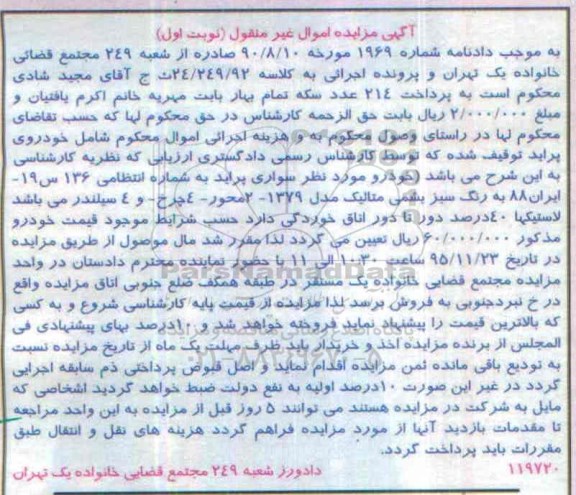 آگهی مزایده اموال غیر منقول (نوبت اول)
به موجب دادنامه شماره ۱۹۶۹ مورخه ۹۰/۸/۱۰ صادره از شعبه ۲۴۹ مجتمع قضائی
خانواده یک تهران و پرونده اجرائی به کلاسه ۲۴/۲۴۹/۹۲ت ج آقای مجید شادی
محکوم است به پرداخت ۲۱۴ عدد سکه تمام بهار بابت مهریه خانم اکرم یافتیان و
مبلغ ۲/۰۰۰/۰۰۰ ریال بابت حق الزحمه کارشناس در حق محکوم لها که حسب تقاضای
محکوم لها در راستای وصول محکوم به و هزینه اجرائی اموال محکوم شامل خودروی
پراید توقیف شده که توسط کارشناس رسمی دادگستری ارزیابی که نظریه کارشناسی
به این شرح می باشد خودرو مورد نظر سواری پراید به شماره انتظامی ۱۳۶ س۱۹-
ایران۸۸ به رنگ سبز یشمی متالیک مدل ۱۳۷۹- ۲محور- ٤چرخ- و ٤ سیلندر می باشد
لاستیکها ۴۰درصد دور تا دور اتاق خوردگی دارد حسب شرایط موجود قیمت خودرو
مذکور ۶۰/۰۰۰/۰۰۰ ریال تعیین می گردد لذا مقرر شد مال موصول از طریق مزایده
در تاریخ ۹۵/۱۱/۲۳ ساعت ۱۰:۳۰ الی ۱۱ با حضور نماینده محترم دادستان در واحد
مزایده مجتمع قضایی خانواده یک مستقر در طبقه همکف ضلع جنوبی اتاق مزایده واقع
در خ نبردجنوبی به فروش برسد لذا مزایده از قیمت پایه کارشناسی شروع و به کسی
که بالاترین قیمت را پیشنهاد نماید فروخته خواهد شد و ۱۰درصد بهای پیشنهادی فی
المجلس از برنده مزایده اخذ و خریدار باید ظرف مهلت یک ماه از تاریخ مزایده نسبت
به تودیع باقی مانده ثمن مزایده اقدام نماید و اصل قبوض پرداختی ذم سابقه اجرایی
گردد در غیر این صورت ۱۰درصد اولیه به نفع دولت ضبط خواهد گردید اشخاصی که
مایل به شرکت در مزایده هستند می توانند ۵ روز قبل از مزایده به این واحد مراجعه
تا مقدمات بازدید آنها از مورد مزایده فراهم گردد هزینه های نقل و انتقال طبق
مقررات باید پرداخت گردد.
۱۱۹۷۲۰ دادورز شعبه ۲۴۹ مجتمع قضایی خانواده یک تهران
ParsNamadData
۰۲۱-۸۸۳۴۹۶۷۰-۵